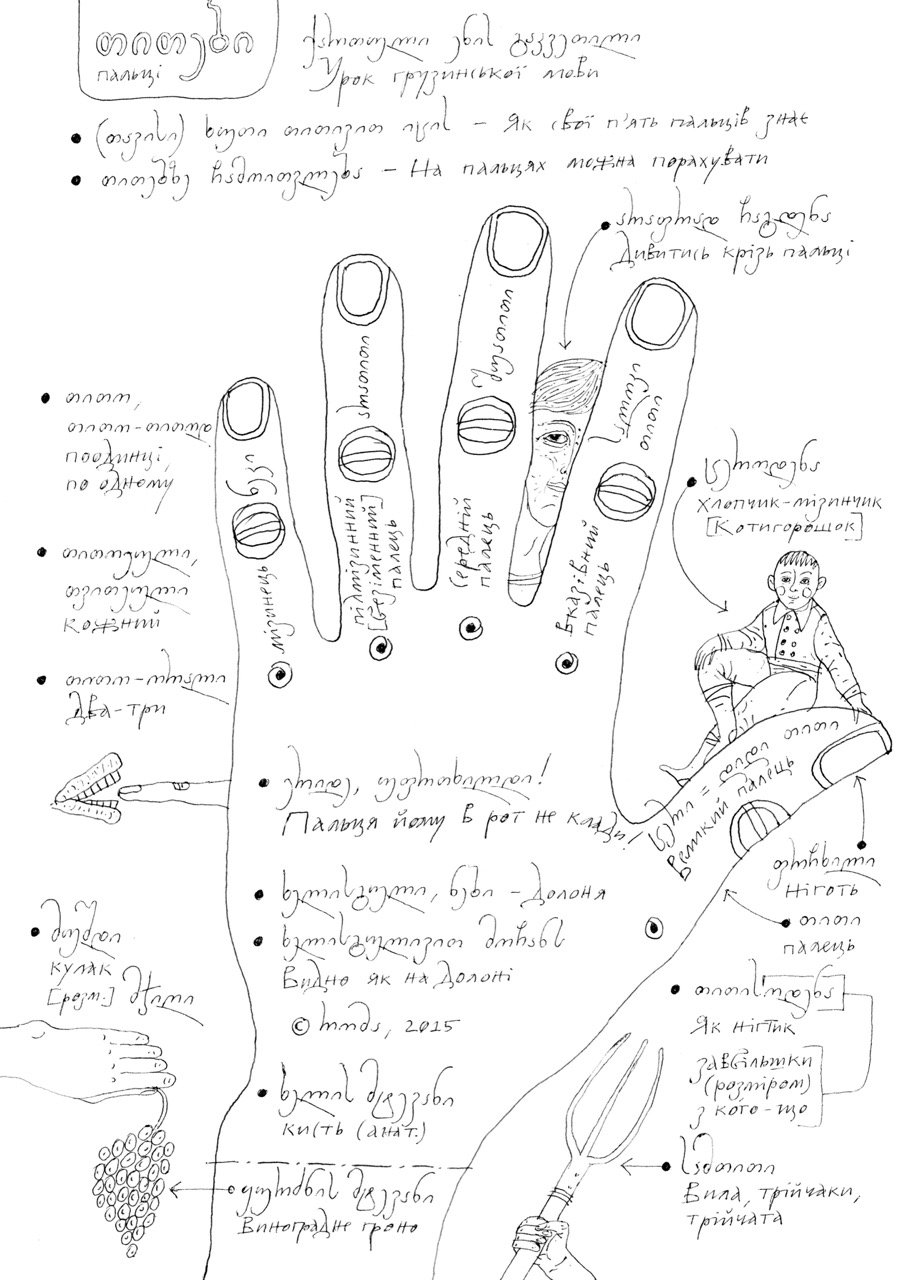 თითები
пальці
ქართული ენის გაკვეთილი
Урок грузинської мови
(თავისი) ხუთი თითივით იცის – Як свої п'ять пальців знає
თითებზე ჩამოითვლება – На пальцях можна порахувати
Дивитись крізь пальці
თითო,
თითო-თითო
поодинці,
по одному
თითოეული,
თვითეული
кожний
თითო-ოროლა
два-три
ნეკი
мізинець
არათითი
підмізинний
[безіменний]
палець
შუათითი
середній
палець
საჩვენებელი თითი
вказівний
палець
ცეროდენა
хлопчик-мізинчик
[Котигорошок]
ცერი = ცერა თითი
великий палець
ფრჩხილი
ніготь
თითი
палець
Пальця йому в рот не клади!
ხელისგული, ნები – долоня
ხელისგულივით მოჩანს
Видно як на долоні
© 2015
მუშტი
кулак
[розм.] მჯიღი
ხელის მტევანი
кисть (анат.)
ყურძნის მტევანი
виноградне гроно
თითისოდენა
як нігтик
завбільшки
(розміром)
з кого-що
სამთითი
вила, трійчаки,
трійчата